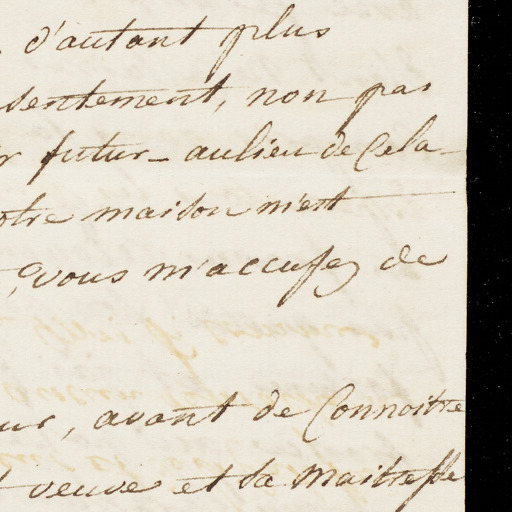 d'autant plus
sentement, non pas
r futur _ aulieu de Cela _
otre maison m'est
, vous m'accusez de
ur, avant de Connoitre
t veuve et sa Maitresse